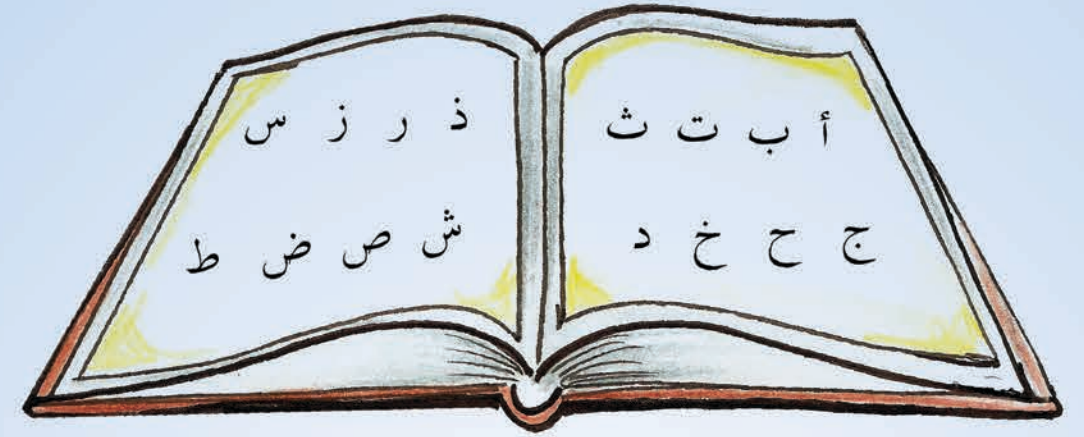 أ ب ت ث
ج ح خ د
ذ ر ز س
ش ص ض ط